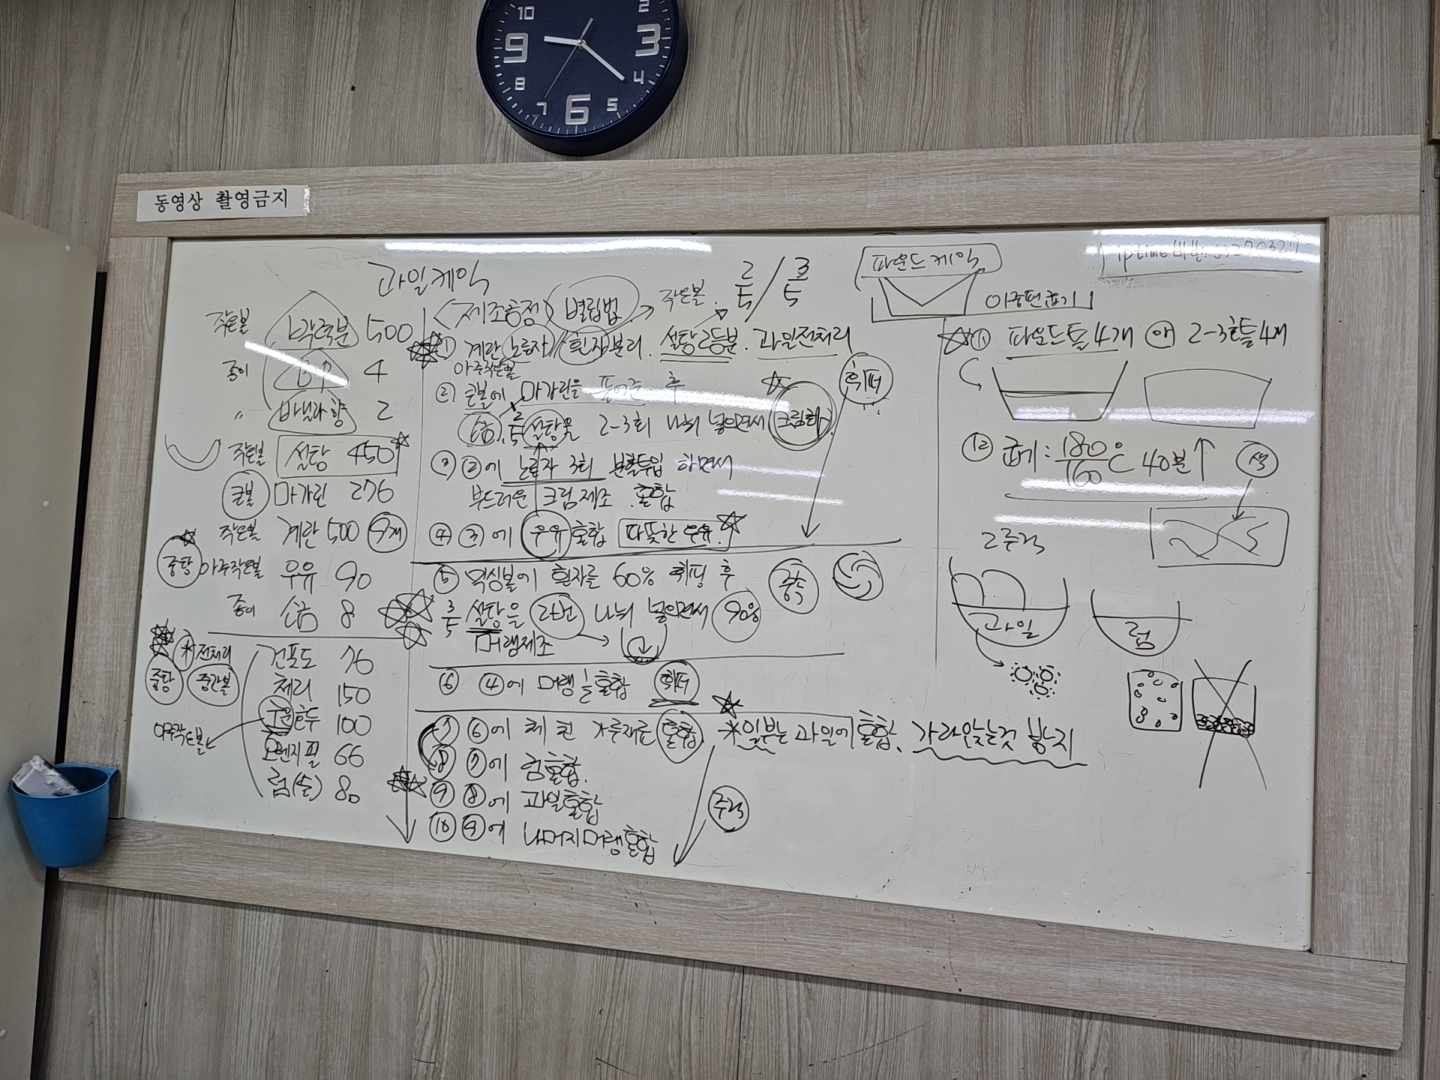 10
2
9
3
8
4
7
6
5
동영상 촬영금지
과일케익
작은볼 박력분 500
종이 B.P 4
〃 바닐라향 2
작은볼 설탕 450
큰볼 마가린 276
작은볼 계란 500 9개
중탕 아주작은볼 우유 90
종이 소금 8
전처리 건포도 76
중탕 중간볼 체리 150
호두 100
아주작은볼
오렌지필 66
럼(술) 80
<제조공정> 별립법 → 작은볼 2/5 / 3/5
① 계란 노른자/흰자분리. 설탕2등분. 과일전처리
아주작은볼
② 큰볼에 마가린을 풀어준 후
소금, 2/5 설탕을 2-3회 나눠 넣으면서 크림화
휘퍼
③ ②에 노른자 3회 분할투입 하면서
부드러운 크림제조. 혼합
④ ③에 우유혼합 따뜻한 우유.
⑤ 믹싱볼에 흰자를 60% 휘핑 후 중속
3/5 설탕을 2번 나눠 넣으면서 90%
머랭제조
⑥ ④에 머랭 혼합 휘퍼
⑦ ⑥에 체 친 가루재료 혼합 *일부는 과일에 혼합. 가라앉는것 방지
⑧ ⑦에 럼혼합.
⑨ ⑧에 과일혼합
⑩ ⑨에 나머지머랭혼합
주걱
파운드케익
이중팬굽기
⑪ 파운드틀4개 2-3호틀4개
⑫ 굽기: 180/160℃ 40분↑ 색
고무주걱
과일
럼